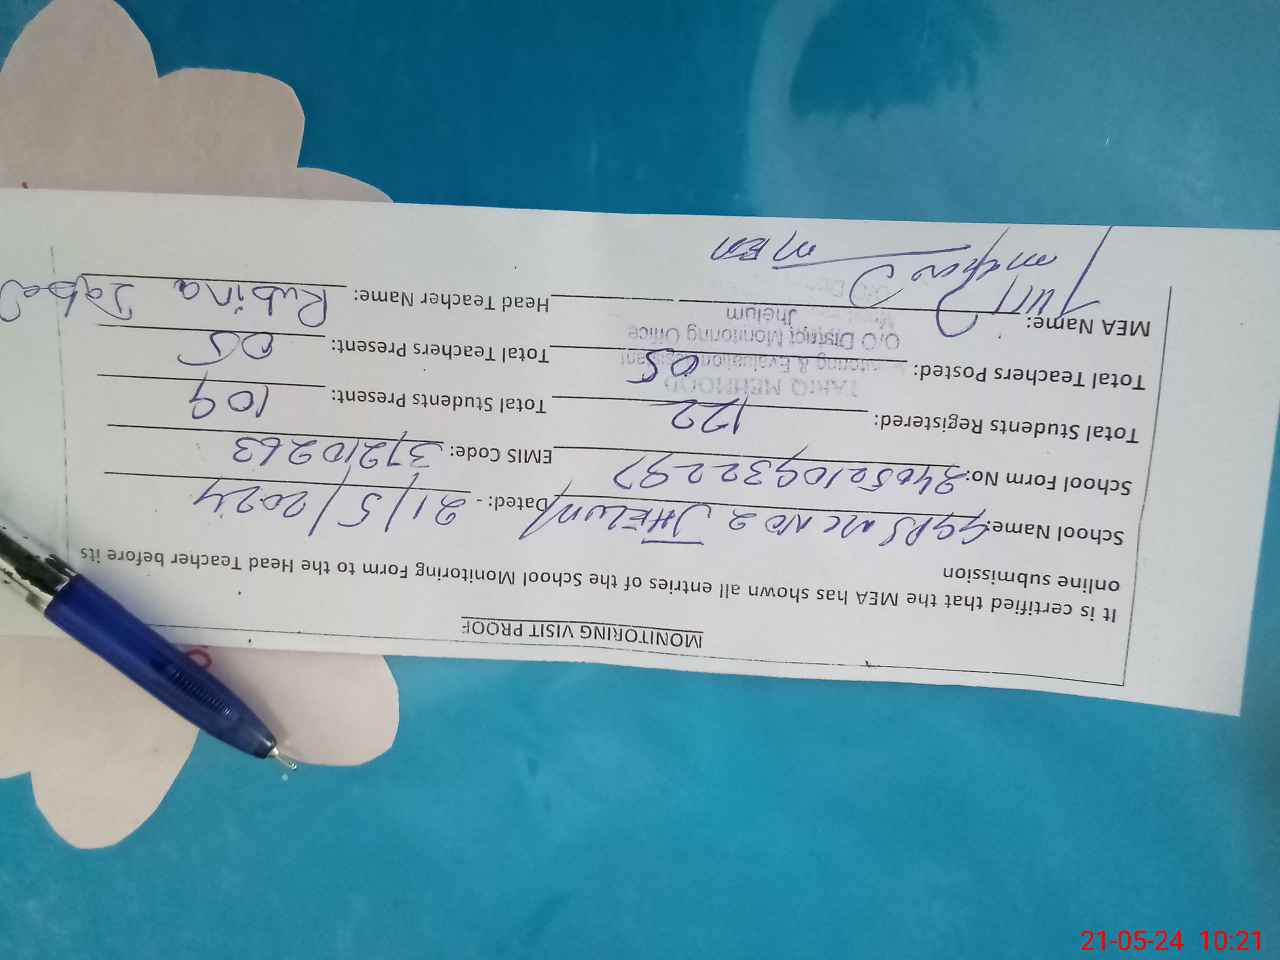 MONITORING VISIT PROOF
It is certified that the MEA has shown all entries of the School Monitoring Form to the Head Teacher before its
online submission
School Name: GGPS MC NO 2 JHELUM Dated: - 21/5/2024
School Form No: 24052109322297 EMIS Code: 37210263
Total Students Registered: 122 Total Students Present: 109
Total Teachers Posted: 05 Total Teachers Present: 05
MEA Name: Head Teacher Name: Rubina Iqbal
TARIQ MEHMOOD
Monitoring & Evaluation Assistant
O/O District Monitoring Office
Jhelum
MEA
21-05-24 10:21